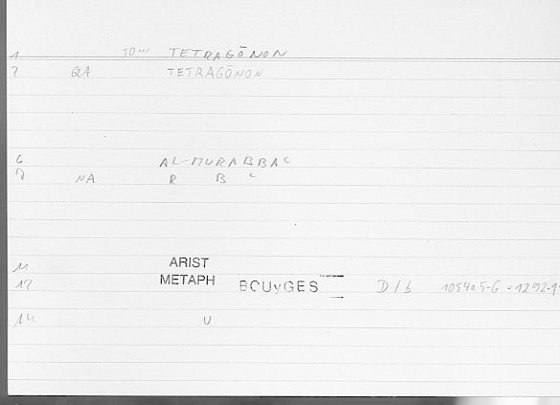 1 TO... TETRAGŌNON
2 QA TETRAGŌNON
6 AL-MURABBAC
7 NA R B C
11 ARIST
12 METAPH BOUYGES D/b 1054a5-6 = 1292.1
14 U